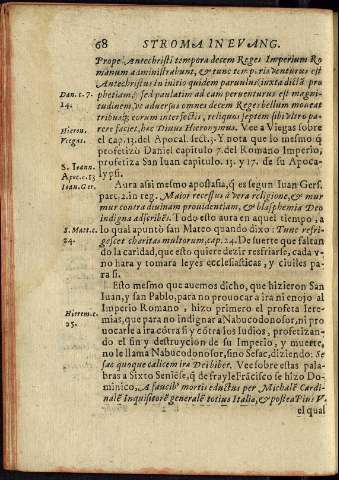 68 STROMA IN EVANG.
Prope Antechristi tempora decem Reges Imperium Ro
manum administrabunt, & tunc temporis venturus est
Antechristus in initio quidem paruulus iuxta dictã pro
Dan. c. 7. phetiam, sed paulatim ad eam peruenturus est magni-
24. tudinem, vt aduersus omnes decem Reges bellum moueat
tribusq; eorum interfectis, reliquos septem sibi vltro pa-
Hieron. rere faciet, hæc Diuus Hieronymus. Vee a Viegas sobre
Viegas. el cap. 13. del Apocal. sect. 3. Y nota que lo mesmo q̃
profetizò Daniel capitulo 7. del Romano Imperio,
S. Ioann. profetiza San Iuan capitulo. 13. y 17. de su Apoca-
Apoc. c. 13 lypsi.
Ioan. Ger. Aura assi mesmo apostasia, q̃ es segun Iuan Gers.
part. 2. in reg. Maior recessus à vera religione, & mur
mur contra diuinam prouidentiam, & blasphemia Deo
indigna adscribẽs. Todo esto aura en aquel tiempo, a
S. Matt. c. lo qual apuntò san Mateo quando dixo: Tunc refri-
24. gescet charitas multorum, cap. 24. De suerte que faltan
do la caridad, que esto quiere dezir resfriarse, cada v-
no hara y tomara leyes ecclesiasticas, y ciuiles pa
ra si.
Esto mesmo que auemos dicho, que hizieron San
Iuan, y san Pablo, para no prouocar a ira ni enojo al
Imperio Romano, hizo primero el profeta Iere-
Hierem. c. mias, que para no indignar a Nabucodonosor, ni pro
25. uocarle a ira cõtra si y cõtra los Iudios, profetizan-
do el fin y destruycion de su Imperio, y muerte,
no le llama Nabucodonosor, sino Sesac, diziendo: Se
sac quoque calicem ira Deibiber. Vee sobre estas pala-
bras a Sixto Senẽse, q̃ de frayle Frãcisco se hizo Do-
minico, A faucib9 mortis eductus per Michalẽ Cardi-
nalẽ Inquisitorẽ generalẽ totius Italiæ, & postea Pius V.
el qual